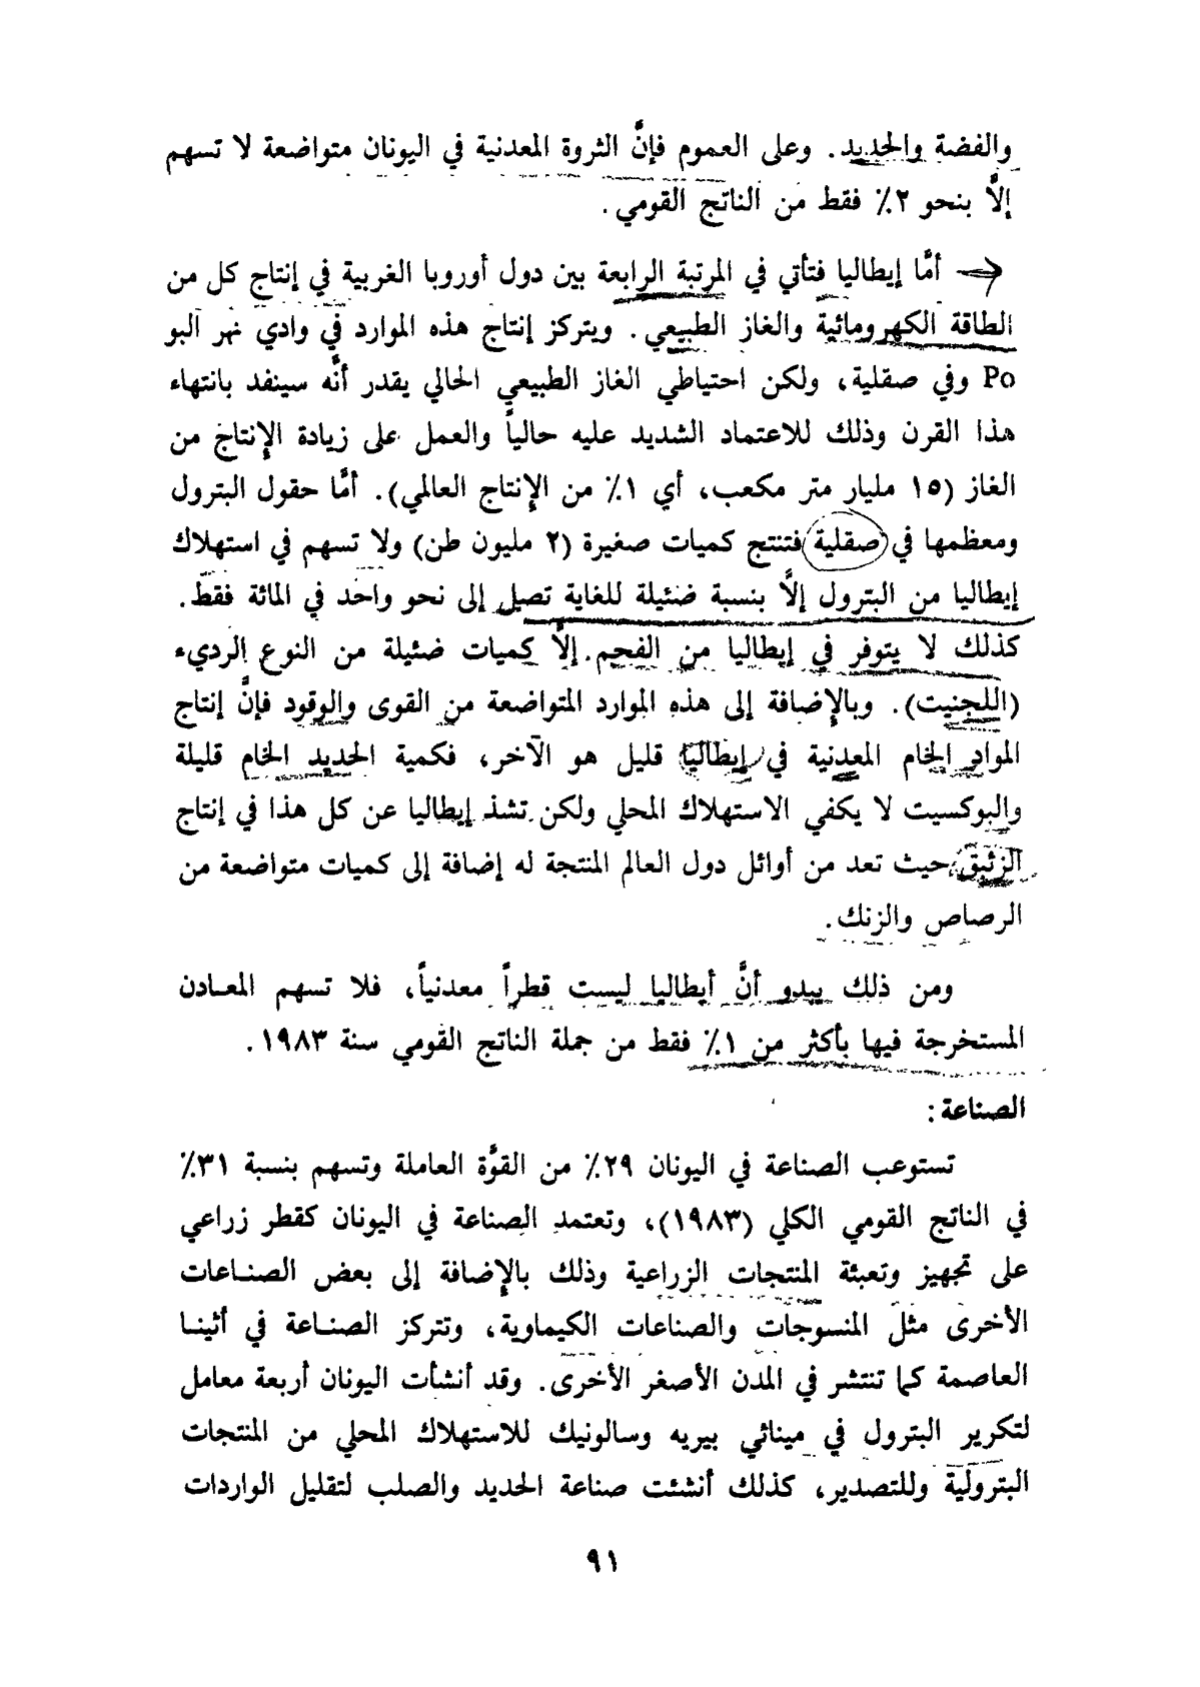 والفضة والحديد. وعلى العموم فإنَّ الثروة المعدنية في اليونان متواضعة لا تسهم
إلاَّ بنحو ٢٪ فقط من الناتج القومي.
أمَّا إيطاليا فتأتي في المرتبة الرابعة بين دول أوروبا الغربية في إنتاج كل من
الطاقة الكهرومائية والغاز الطبيعي. ويتركز إنتاج هذه الموارد في وادي نهر البو
Po وفي صقلية، ولكن احتياطي الغاز الطبيعي الحالي يقدر أنَّه سينفد بانتهاء
هذا القرن وذلك للاعتماد الشديد عليه حالياً والعمل على زيادة الإنتاج من
الغاز (١٥ مليار متر مكعب، أي ١٪ من الإنتاج العالمي). أمَّا حقول البترول
ومعظمها في صقلية فتنتج كميات صغيرة (٢ مليون طن) ولا تسهم في استهلاك
إيطاليا من البترول إلاَّ بنسبة ضئيلة للغاية تصل إلى نحو واحد في المائة فقط.
كذلك لا يتوفر في إيطاليا من الفحم إلاَّ كميات ضئيلة من النوع الرديء
(اللجنيت). وبالإضافة إلى هذه الموارد المتواضعة من القوى والوقود فإنَّ إنتاج
المواد الخام المعدنية في إيطاليا قليل هو الآخر، فكمية الحديد الخام قليلة
والبوكسيت لا يكفي الاستهلاك المحلي ولكن تشذ إيطاليا عن كل هذا في إنتاج
الزئبق حيث تعد من أوائل دول العالم المنتجة له إضافة إلى كميات متواضعة من
الرصاص والزنك.
ومن ذلك يبدو أنَّ أيطاليا ليست قطراً معدنياً، فلا تسهم المعادن
المستخرجة فيها بأكثر من ١٪ فقط من جملة الناتج القومي سنة ١٩٨٣.
الصناعة:
تستوعب الصناعة في اليونان ٢٩٪ من القوَّة العاملة وتسهم بنسبة ٣١٪
في الناتج القومي الكلي (١٩٨٣)، وتعتمد الصناعة في اليونان كقطر زراعي
على تجهيز وتعبئة المنتجات الزراعية وذلك بالإضافة إلى بعض الصناعات
الأخرى مثل المنسوجات والصناعات الكيماوية، وتتركز الصناعة في أثينا
العاصمة كما تنتشر في المدن الأصغر الأخرى. وقد أنشأت اليونان أربعة معامل
لتكرير البترول في مينائي بيريه وسالونيك للاستهلاك المحلي من المنتجات
البترولية وللتصدير، كذلك أنشئت صناعة الحديد والصلب لتقليل الواردات
٩١